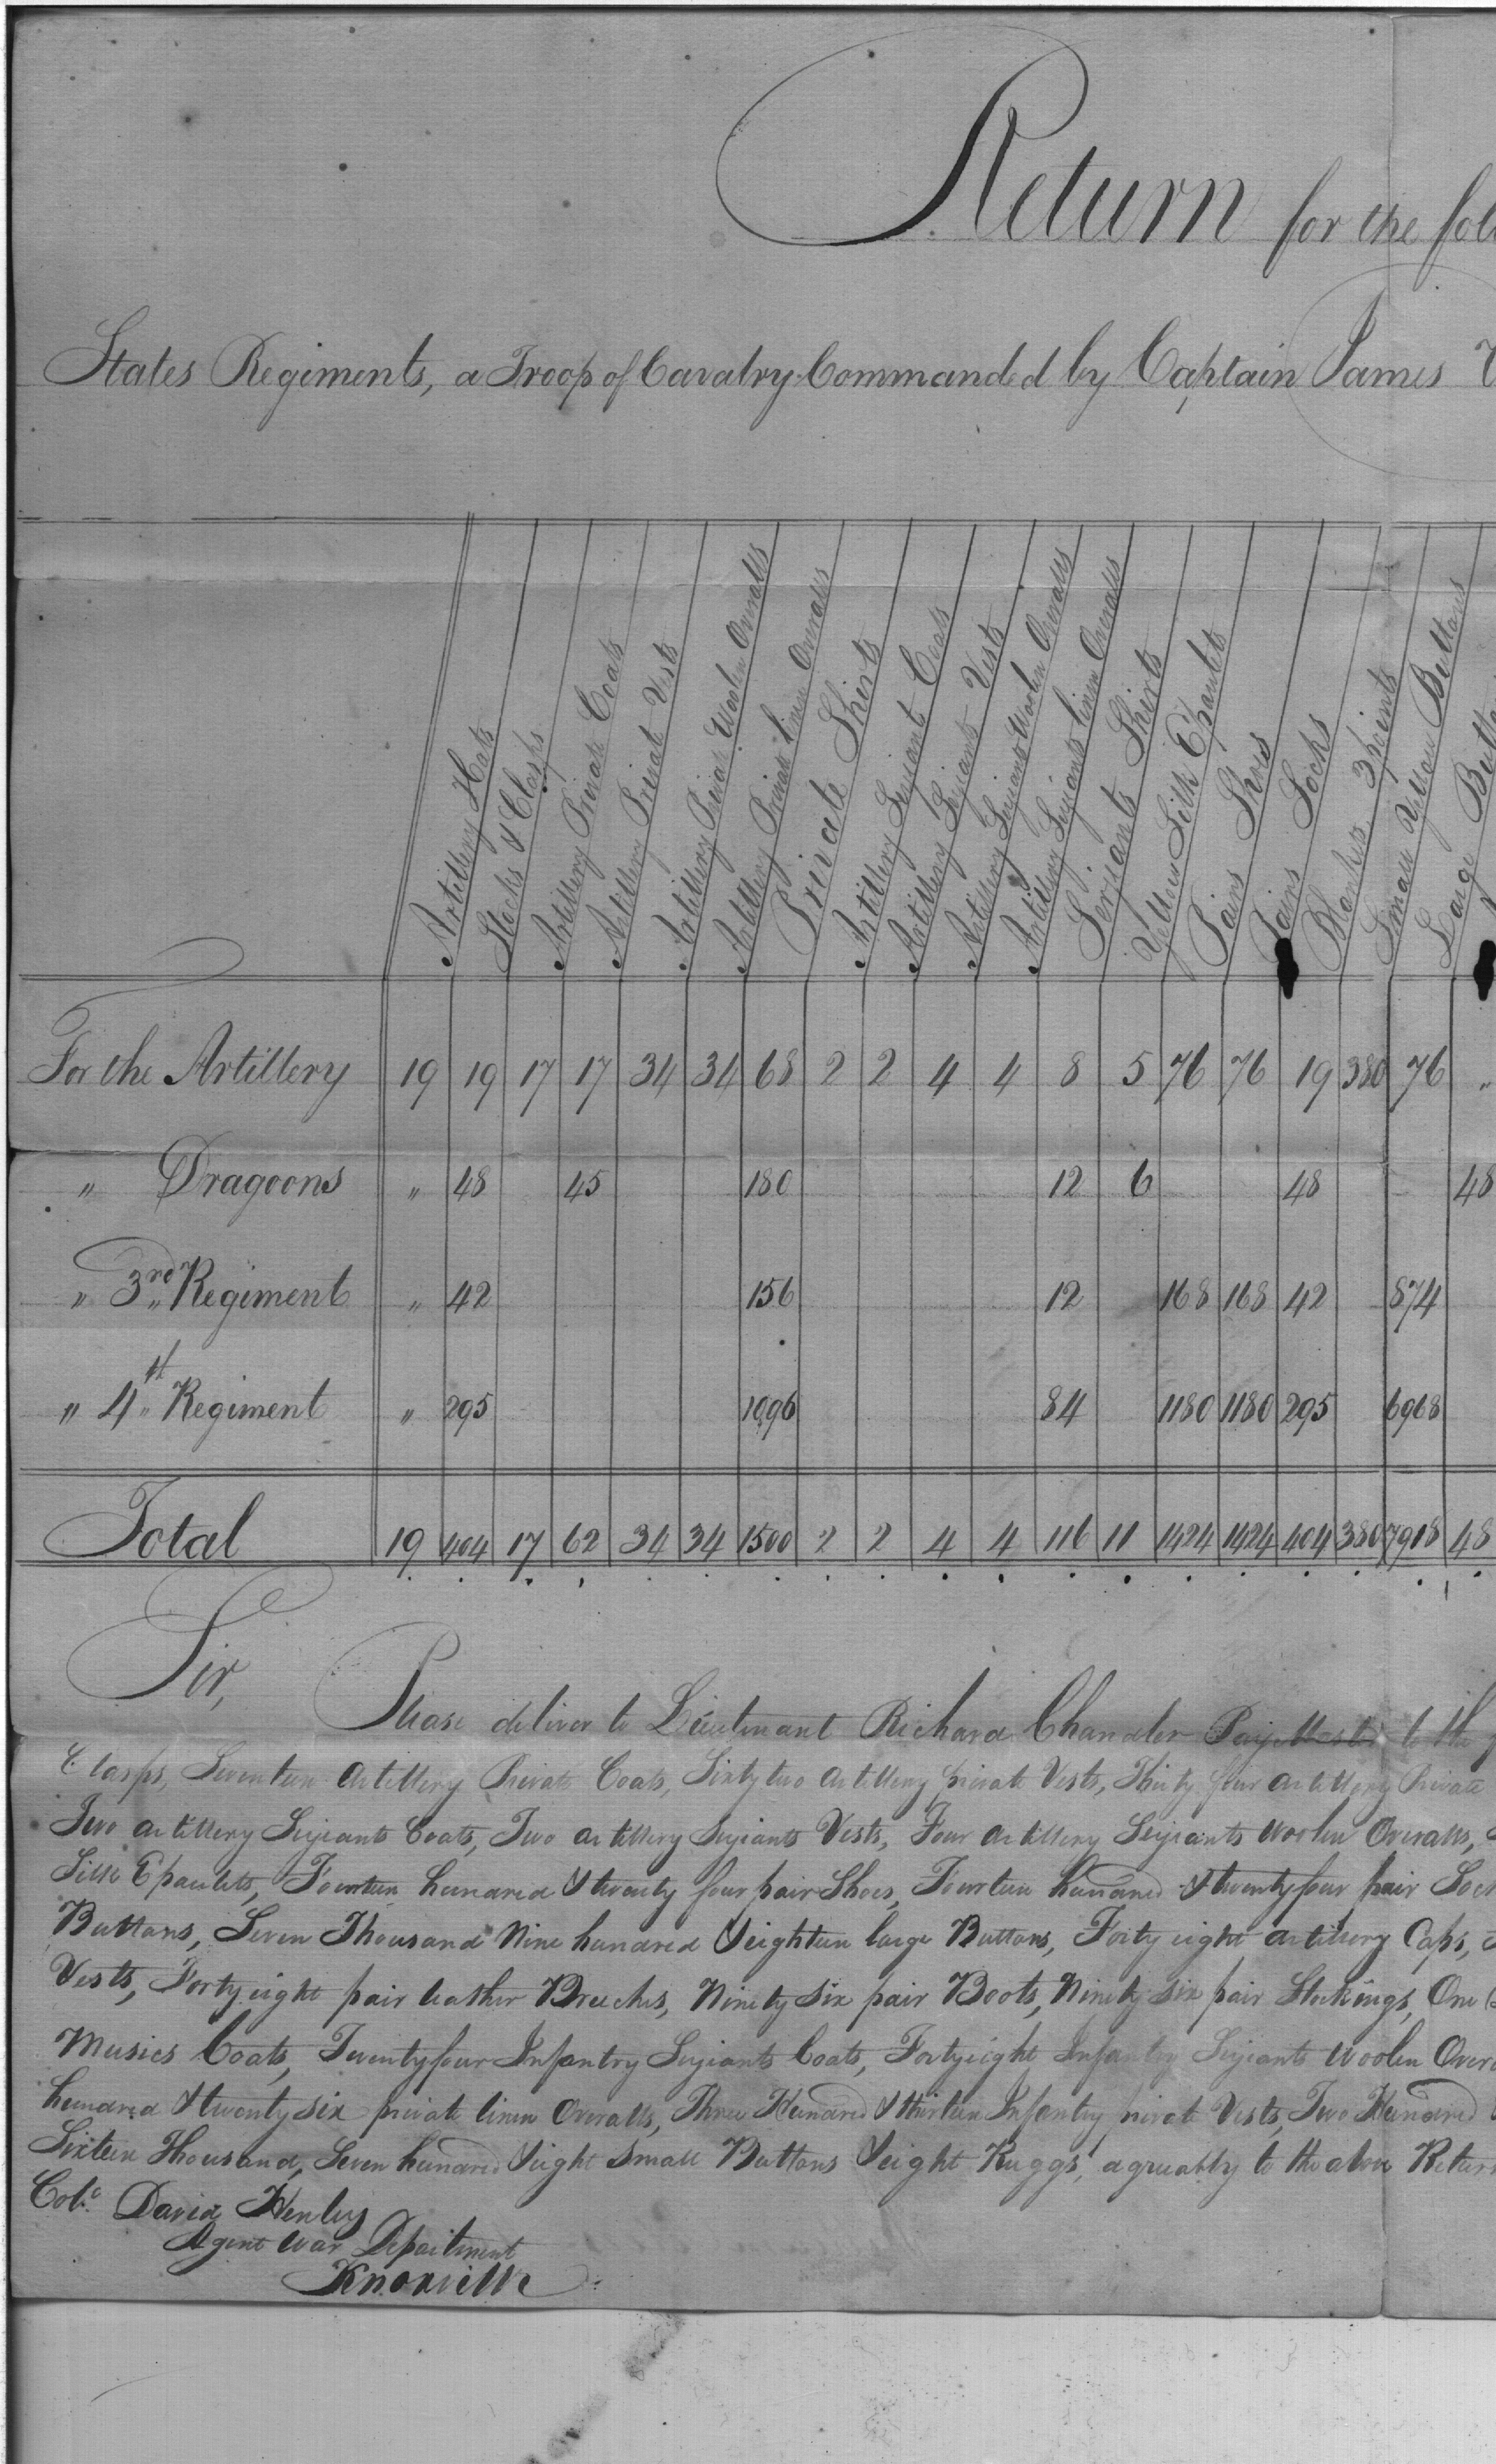 Return for the foll
States Regiments, a Troop of Cavalry Commanded by Captain James V
Artillery Hats
Stocks & Clasps
Artillery Private Coats
Artillery Private Vests
Artillery Private Woolen Overalls
Artillery Private linen Overalls
Private Shirts
Artillery Serjeants Coats
Artillery Serjeants Vests
Artillery Serjeants Woolen Overalls
Artillery Serjeants linen Overalls
Serjeants Shirts
Yellow Silk Epaulets
Pairs Shoes
Pairs Socks
Blankets 3 points
Small Yellow Buttons
Large Butto
For the Artillery 19 19 17 17 34 34 68 2 2 4 4 8 5 76 76 19 380 76 "
" Dragoons " 48 45 180 12 6 48 48
" 3rd Regiment " 42 156 12 168 168 42 874
" 4th Regiment " 295 1096 84 1180 1180 295 6968
Total 19 404 17 62 34 34 1500 2 2 4 4 116 11 1424 1424 404 380 7918 48
Sir,
Please deliver to Lieutenant Richard Chandler Pay Master to the
Clasps, Seventeen Artillery Private Coats, Sixty two Artillery private Vests, Thirty four Artillery Private
Two Artillery Serjeants Coats, Two Artillery Serjeants Vests, Four Artillery Serjeants Woolen Overalls,
Silk Epaulets, Fourteen hundred & twenty four pair Shoes, Fourteen hundred & twenty four pair Soc
Buttons, Seven Thousand Nine hundred & eighteen large Buttons, Forty eight Artillery Caps,
Vests, Forty eight pair leather Breeches, Ninety six pair Boots, Ninety six pair Stockings, One
Musics Coats, Twenty four Infantry Serjeants Coats, Forty eight Infantry Serjeants Woolen Over
hundred & twenty six private linen Overalls, Three Hundred & thirteen Infantry private Vests, Two Hundred
Sixteen Thousand, Seven hundred & eight Small Buttons & eight Ruggs, agreeably to the above Retur
Colo. David Henley
Agent War Department
Knoxville